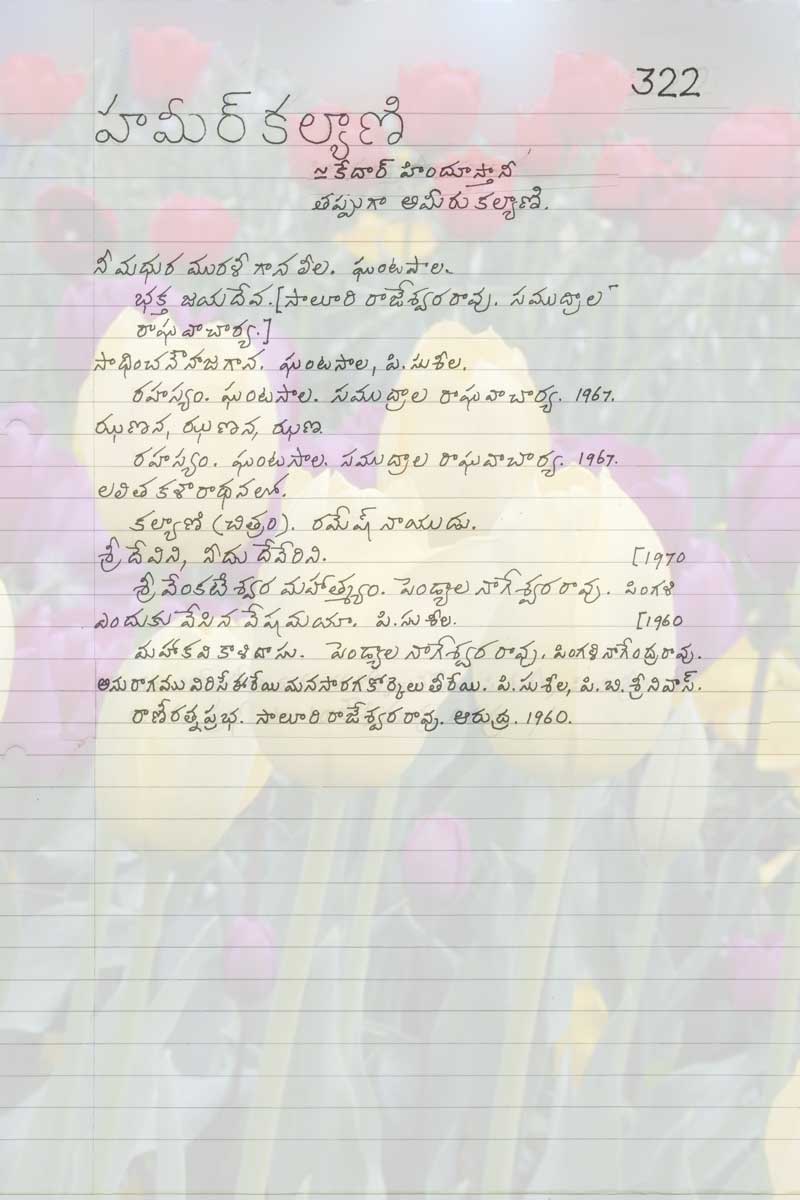 322
హమీర్ కల్యాణి
≃ కేదార్ హిందూస్తానీ
తప్పుగా అమీరు కల్యాణి.
నీ మధుర మురళీ గాన లీల. ఘంటసాల.
భక్త జయదేవ. [సాలూరి రాజేశ్వర రావు. సముద్రాల
రాఘవాచార్య.]
సాధించనౌనాజగాన. ఘంటసాల, పి. సుశీల.
రహస్యం. ఘంటసాల. సముద్రాల రాఘవాచార్య. 1967.
ఝణన, ఝణన, ఝణ
రహస్యం. ఘంటసాల. సముద్రాల రాఘవాచార్య. 1967.
లలిత కళారాధనలో.
కల్యాణి (చిత్రం). రమేష్ నాయుడు.
శ్రీ దేవిని, నీదు దేవేరిని. [1970
శ్రీ వేంకటేశ్వర మహాత్మ్యం. పెండ్యాల నాగేశ్వర రావు. పింగళి
ఎందుకు వేసిన వేషమయా. పి. సుశీల. [1960
మహాకవి కాళిదాసు. పెండ్యాల నాగేశ్వర రావు. పింగళి నాగేంద్ర రావు.
అనురాగము విరిసే ఈ రేయి మనసారగ కోర్కెలు తీరేయి. పి. సుశీల, పి. బి. శ్రీనివాస్.
రాణీ రత్నప్రభ. సాలూరి రాజేశ్వర రావు. ఆరుద్ర. 1960.